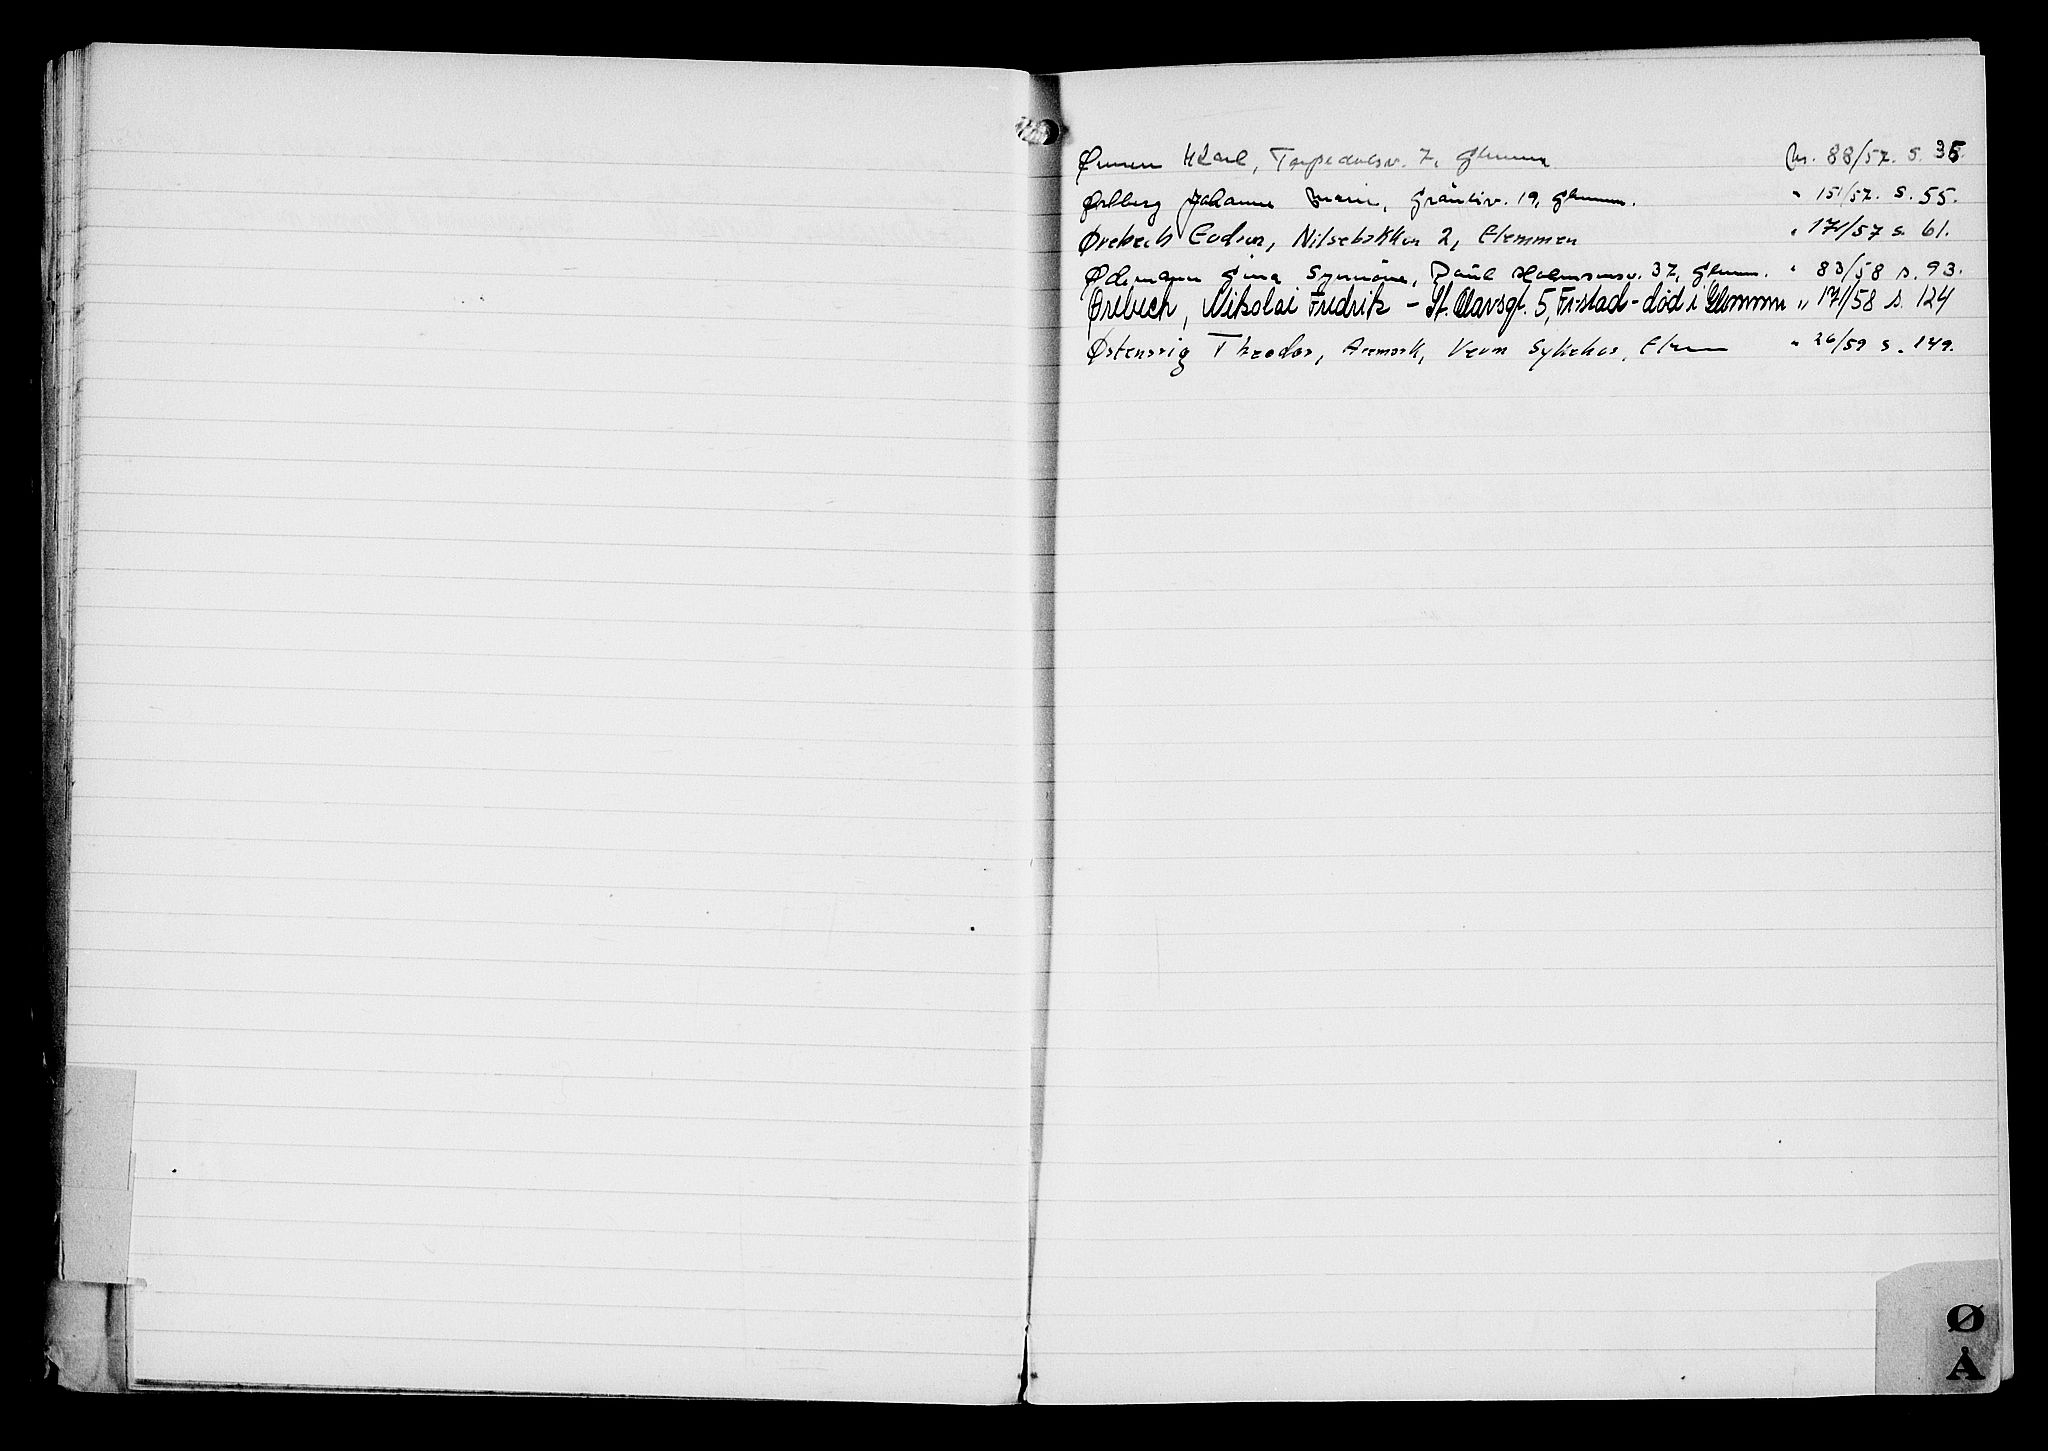 Karl, Torpedalsv. 7, Glemm Nr. 88/57. s. 36.
Johanne Marie, Gråuliv. 19, Glemm. " 151/57. s. 55.
Ørebech Gudrun, Nilsebakken 2, Glemmen " 171/57 s. 61.
Ødemann Gina Synnöve, Paul Holmsensv. 37, Glemm. " 83/58 s. 93.
Ørebech, Nikolai Fredrik - St. Olavsgt. 5, Fr.stad - død i Glemmen " 171/58 s. 124
Østensvig Theodor, Aremark, Veum Sykehus, Glem " 26/59 s. 149.
Ø
Å